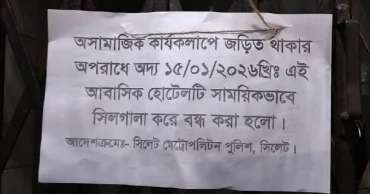 অসামাজিক কার্যকলাপে জড়িত থাকার
অপরাধে অদ্য ১৫/০১/২০২৬খ্রিঃ এই
আবাসিক হোটেলটি সাময়িকভাবে
সিলগালা করে বন্ধ করা হলো।
আদেশক্রমেঃ- সিলেট মেট্রোপলিটন পুলিশ, সিলেট।